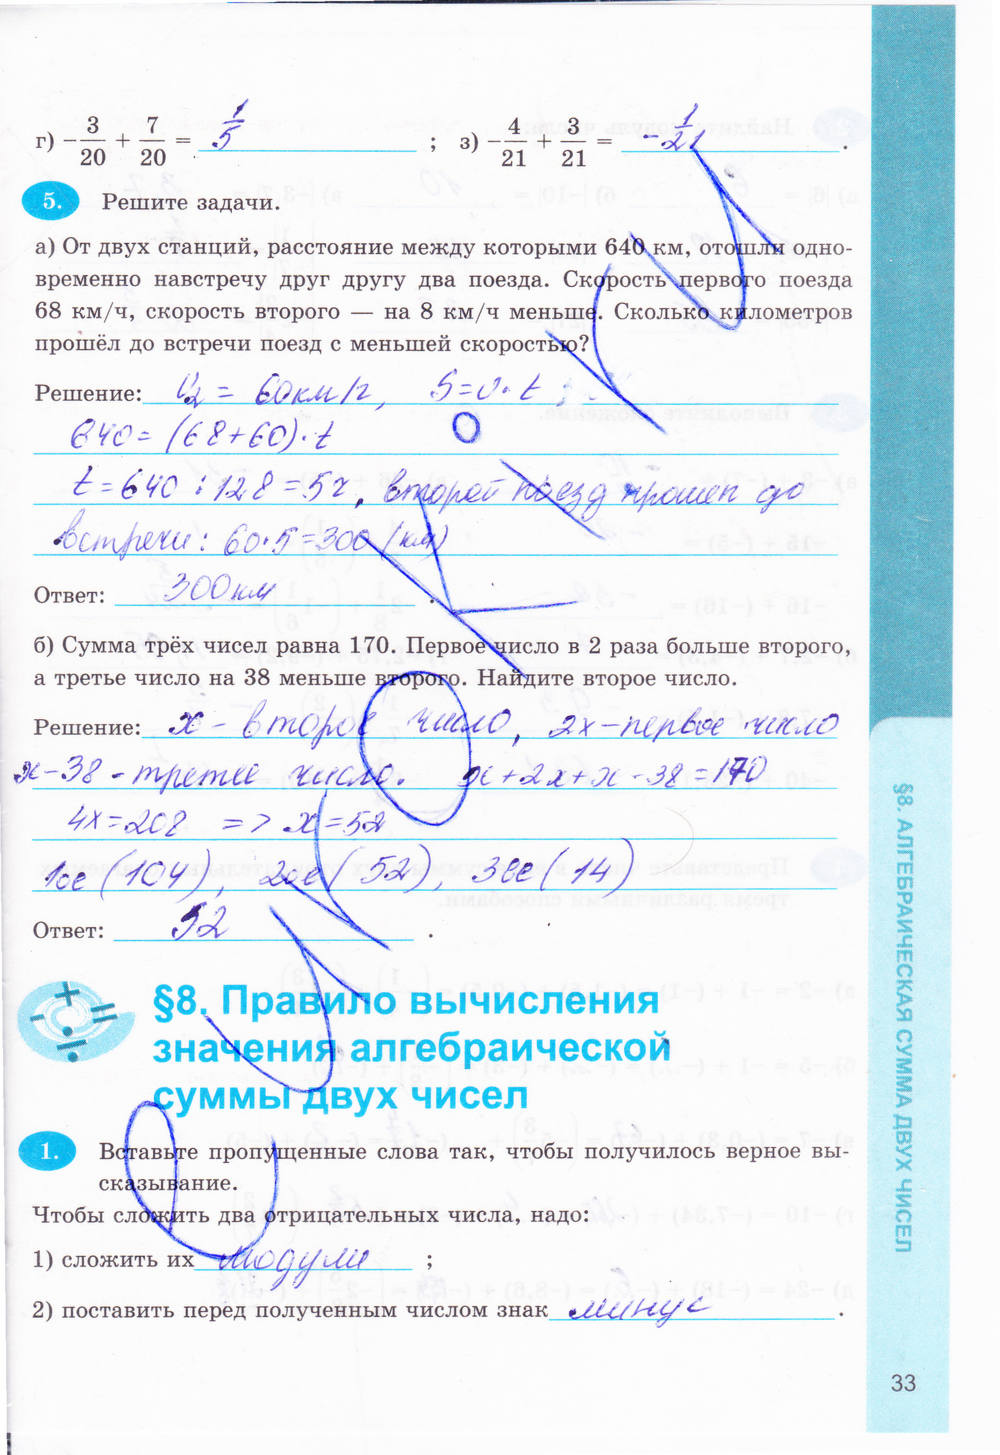 г) −3/20 + 7/20 = 1/5 ; з) −4/21 + 3/21 = −1/21 .
5. Решите задачи.
а) От двух станций, расстояние между которыми 640 км, отошли одно-
временно навстречу друг другу два поезда. Скорость первого поезда
68 км/ч, скорость второго — на 8 км/ч меньше. Сколько километров
прошёл до встречи поезд с меньшей скоростью?
Решение: v₂ = 60 км/ч, S = v · t
640 = (68+60) · t
t = 640 : 128 = 5ч, второй поезд прошел до
встречи: 60·5=300 (км)
Ответ: 300 км .
б) Сумма трёх чисел равна 170. Первое число в 2 раза больше второго,
а третье число на 38 меньше второго. Найдите второе число.
Решение: x – второе число, 2x – первое число
x – 38 – третее число. x + 2x + x – 38 = 170
4x = 208 => x = 52
1ое (104), 2ое (52), 3ее (14)
Ответ: 52 .
§8. Правило вычисления
значения алгебраической
суммы двух чисел
1. Вставьте пропущенные слова так, чтобы получилось верное вы-
сказывание.
Чтобы сложить два отрицательных числа, надо:
1) сложить их модули ;
2) поставить перед полученным числом знак минус .
§8. АЛГЕБРАИЧЕСКАЯ СУММА ДВУХ ЧИСЕЛ
33
euroki.ru